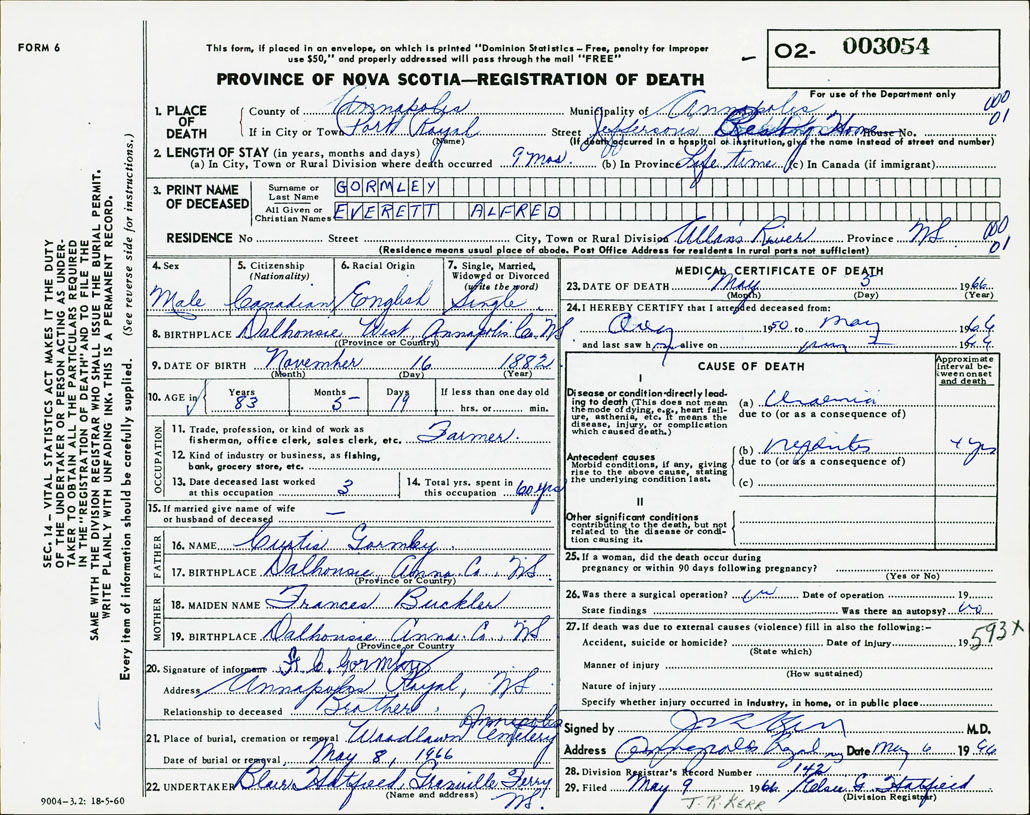 FORM 6
This form, if placed in an envelope, on which is printed "Dominion Statistics – Free, penalty for improper
use $50," and properly addressed will pass through the mail "FREE"
PROVINCE OF NOVA SCOTIA—REGISTRATION OF DEATH
02- 003054
For use of the Department only
1. PLACE OF DEATH
County of Annapolis Municipality of Annapolis 000 01
If in City or Town Port Royal Street Jeffersons Resting Home House No.
(Name) (If death occurred in a hospital or institution, give the name instead of street and number)
2. LENGTH OF STAY (in years, months and days)
(a) In City, Town or Rural Division where death occurred 9 mos. (b) In Province Life time (c) In Canada (if immigrant)
3. PRINT NAME OF DECEASED
Surname or Last Name GORMLEY
All Given or Christian Names EVERETT ALFRED
RESIDENCE No Street City, Town or Rural Division Allan's River Province N.S. 000 01
(Residence means usual place of abode. Post Office Address for residents in rural parts not sufficient)
4. Sex Male
5. Citizenship (Nationality) Canadian
6. Racial Origin English
7. Single, Married, Widowed or Divorced (write the word) Single
8. BIRTHPLACE Dalhousie West Annapolis Co. N.S
(Province or Country)
9. DATE OF BIRTH November 16 1882
(Month) (Day) (Year)
10. AGE in Years 83 Months 5 Days 19 If less than one day old hrs. or min.
OCCUPATION
11. Trade, profession, or kind of work as fisherman, office clerk, sales clerk, etc. Farmer.
12. Kind of industry or business, as fishing, bank, grocery store, etc.
13. Date deceased last worked at this occupation 3
14. Total yrs. spent in this occupation 60 yrs
15. If married give name of wife or husband of deceased —
FATHER
16. NAME Curtis Gormley
17. BIRTHPLACE Dalhousie Anna. Co., N.S.
(Province or Country)
MOTHER
18. MAIDEN NAME Frances Buckler
19. BIRTHPLACE Dalhousie Anna. Co., N.S
(Province or Country
20. Signature of informant Gormley
Address Annapolis Royal, N.S.
Relationship to deceased Brother.
21. Place of burial, cremation or removal Woodlawn Cemetery Annapolis
Date of burial or removal, May 8, 1966
22. UNDERTAKER Blair Hatfield, Granville Ferry N.S.
(Name and address)
9004-3.2: 18-5-60
MEDICAL CERTIFICATE OF DEATH
23. DATE OF DEATH May 5 1966
(Month) (Day) (Year)
24. I HEREBY CERTIFY that I attended deceased from:
1950 to May 1966
and last saw h alive on 1966
CAUSE OF DEATH
Approximate interval between onset and death
I
Disease or condition directly leading to death (This does not mean the mode of dying, e.g., heart failure, asthenia, etc. It means the disease, injury, or complication which caused death.)
(a) Uraemia
due to (or as a consequence of)
Antecedent causes
Morbid conditions, if any, giving rise to the above cause, stating the underlying condition last.
(b) nephritis yrs
due to (or as a consequence of)
(c)
II
Other significant conditions contributing to the death, but not related to the disease or condition causing it.
25. If a woman, did the death occur during
pregnancy or within 90 days following pregnancy?
(Yes or No)
26. Was there a surgical operation? no Date of operation 19
State findings Was there an autopsy? no
27. If death was due to external causes (violence) fill in also the following:–
Accident, suicide or homicide? Date of injury 19
(State which)
593X
Manner of injury
(How sustained)
Nature of injury
Specify whether injury occurred in Industry, in home, or in public place
Signed by J R Kerr M.D.
Address Annapolis Royal Date May 6 1966
28. Division Registrar's Record Number 142
29. Filed May 9 1966 Hatfield
(Division Registrar)
J. R. KERR
SEC. 14 – VITAL STATISTICS ACT MAKES IT THE DUTY
OF THE UNDERTAKER OR PERSON ACTING AS UNDERTAKER
TO OBTAIN ALL THE PARTICULARS REQUIRED
IN THE "REGISTRATION OF DEATH" AND TO FILE THE
SAME WITH THE DIVISION REGISTRAR WHO SHALL ISSUE THE BURIAL PERMIT.
WRITE PLAINLY WITH UNFADING INK. THIS IS A PERMANENT RECORD.
Every item of information should be carefully supplied. (See reverse side for instructions.)